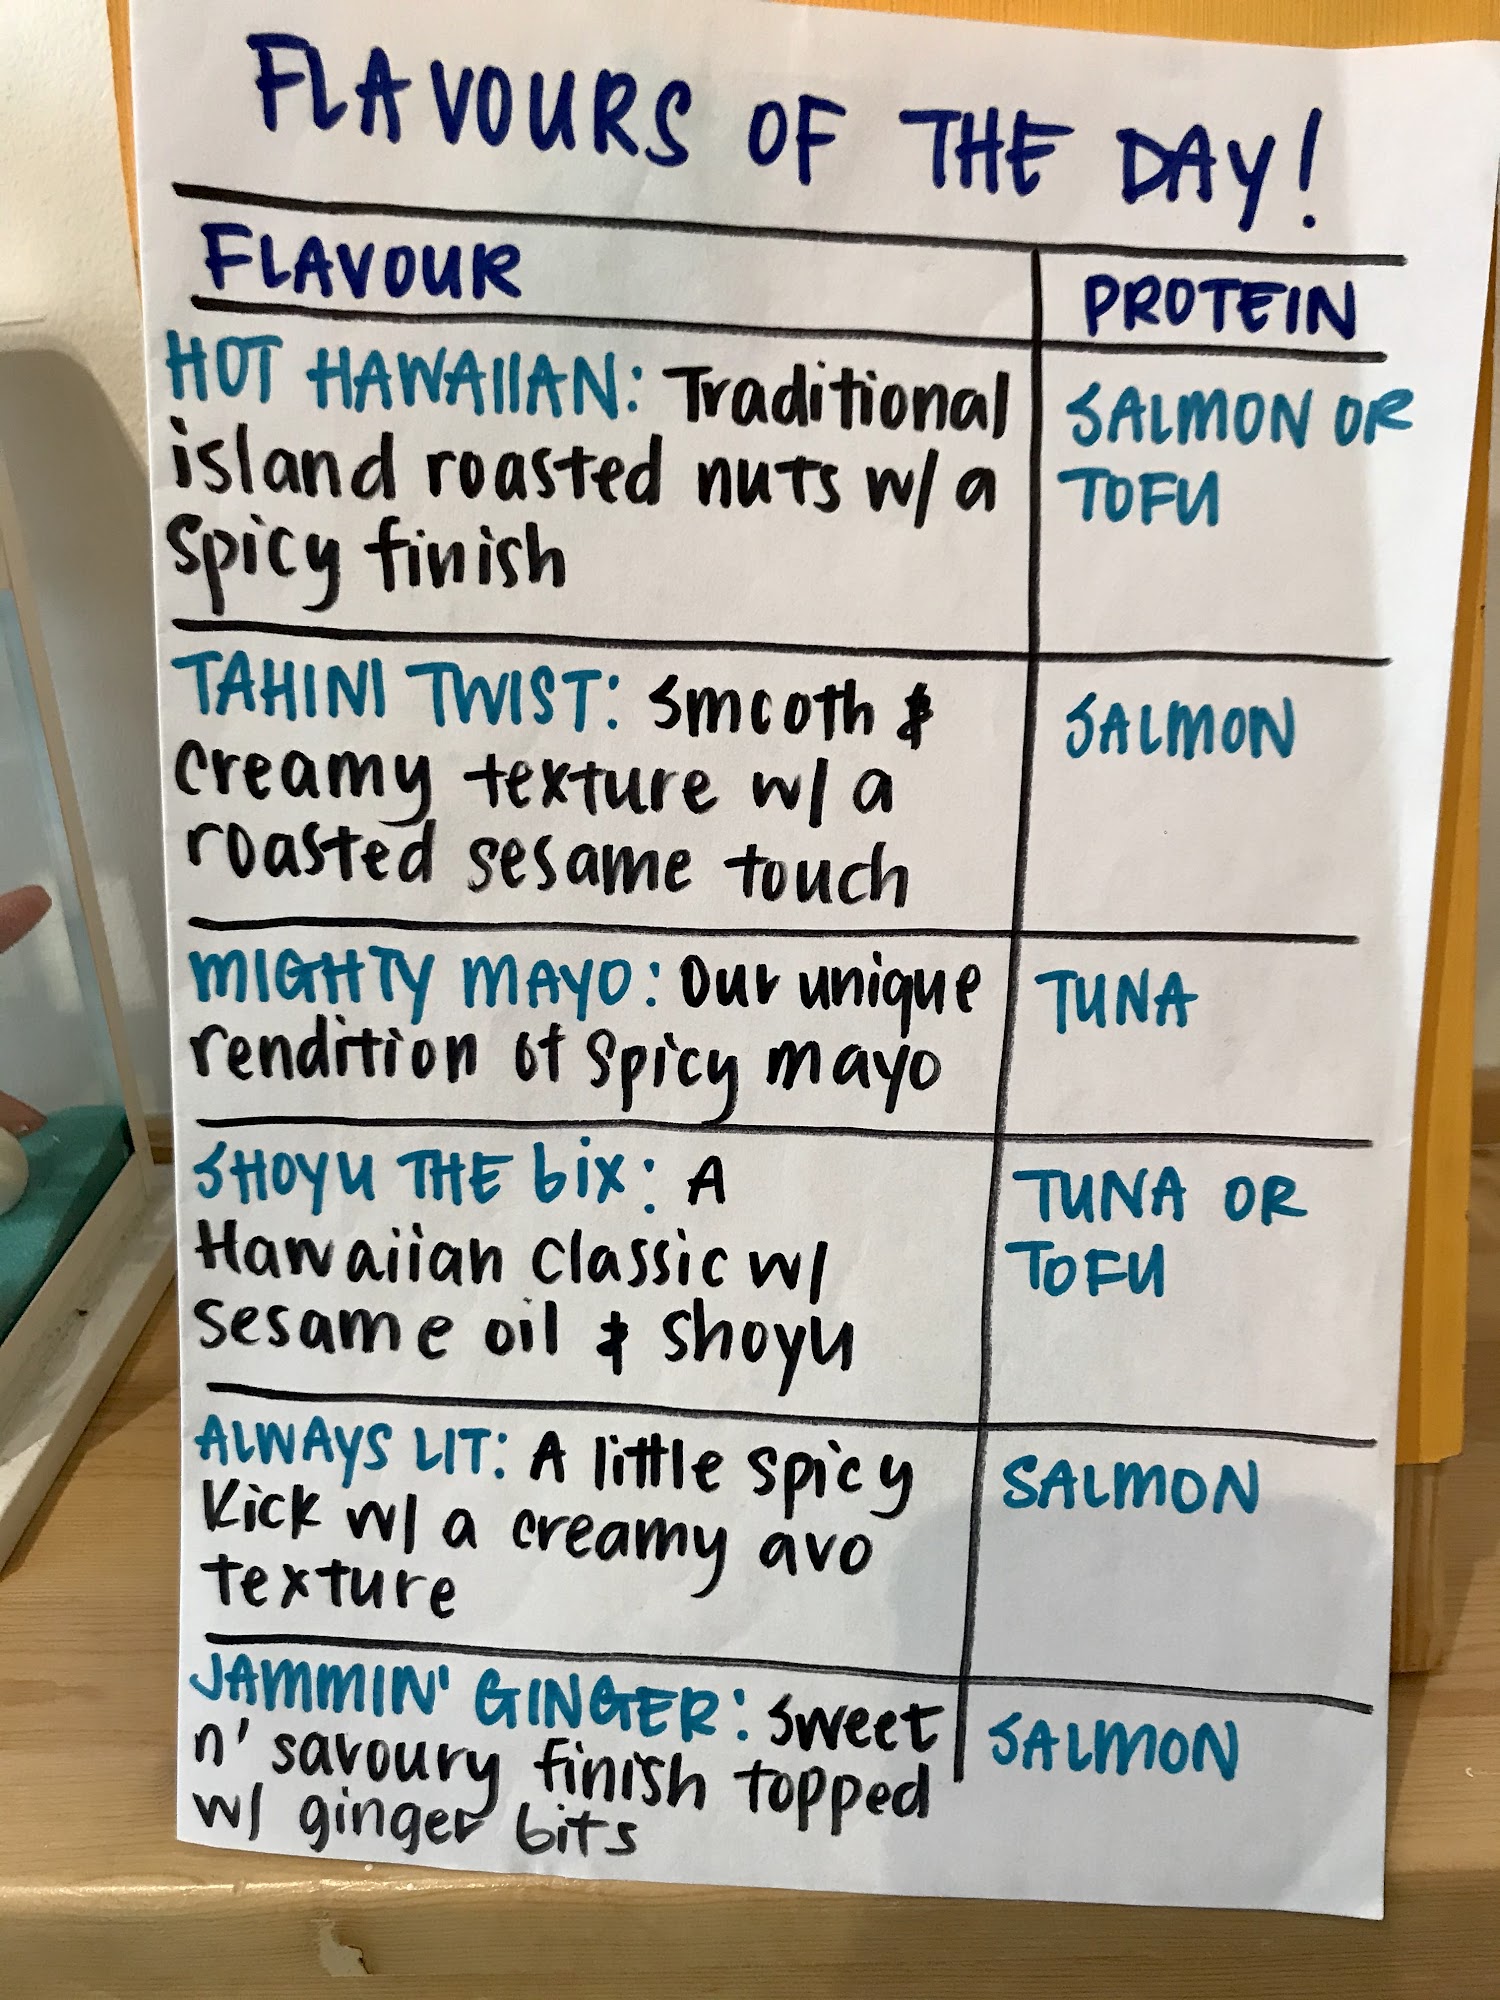 FLAVOURS OF THE DAY!
FLAVOUR
PROTEIN
HOT HAWAIIAN: Traditional
island roasted nuts w/ a
spicy finish
SALMON OR
TOFU
TAHINI TWIST: Smooth &
creamy texture w/ a
roasted sesame touch
SALMON
MIGHTY MAYO: Our unique
rendition of spicy mayo
TUNA
SHOYU THE bix: A
Hawaiian classic w/
sesame oil & shoyu
TUNA OR
TOFU
ALWAYS LIT: A little spicy
kick w/ a creamy avo
texture
SALMON
JAMMIN' GINGER: Sweet
n' savoury finish topped
w/ ginger bits
SALMON